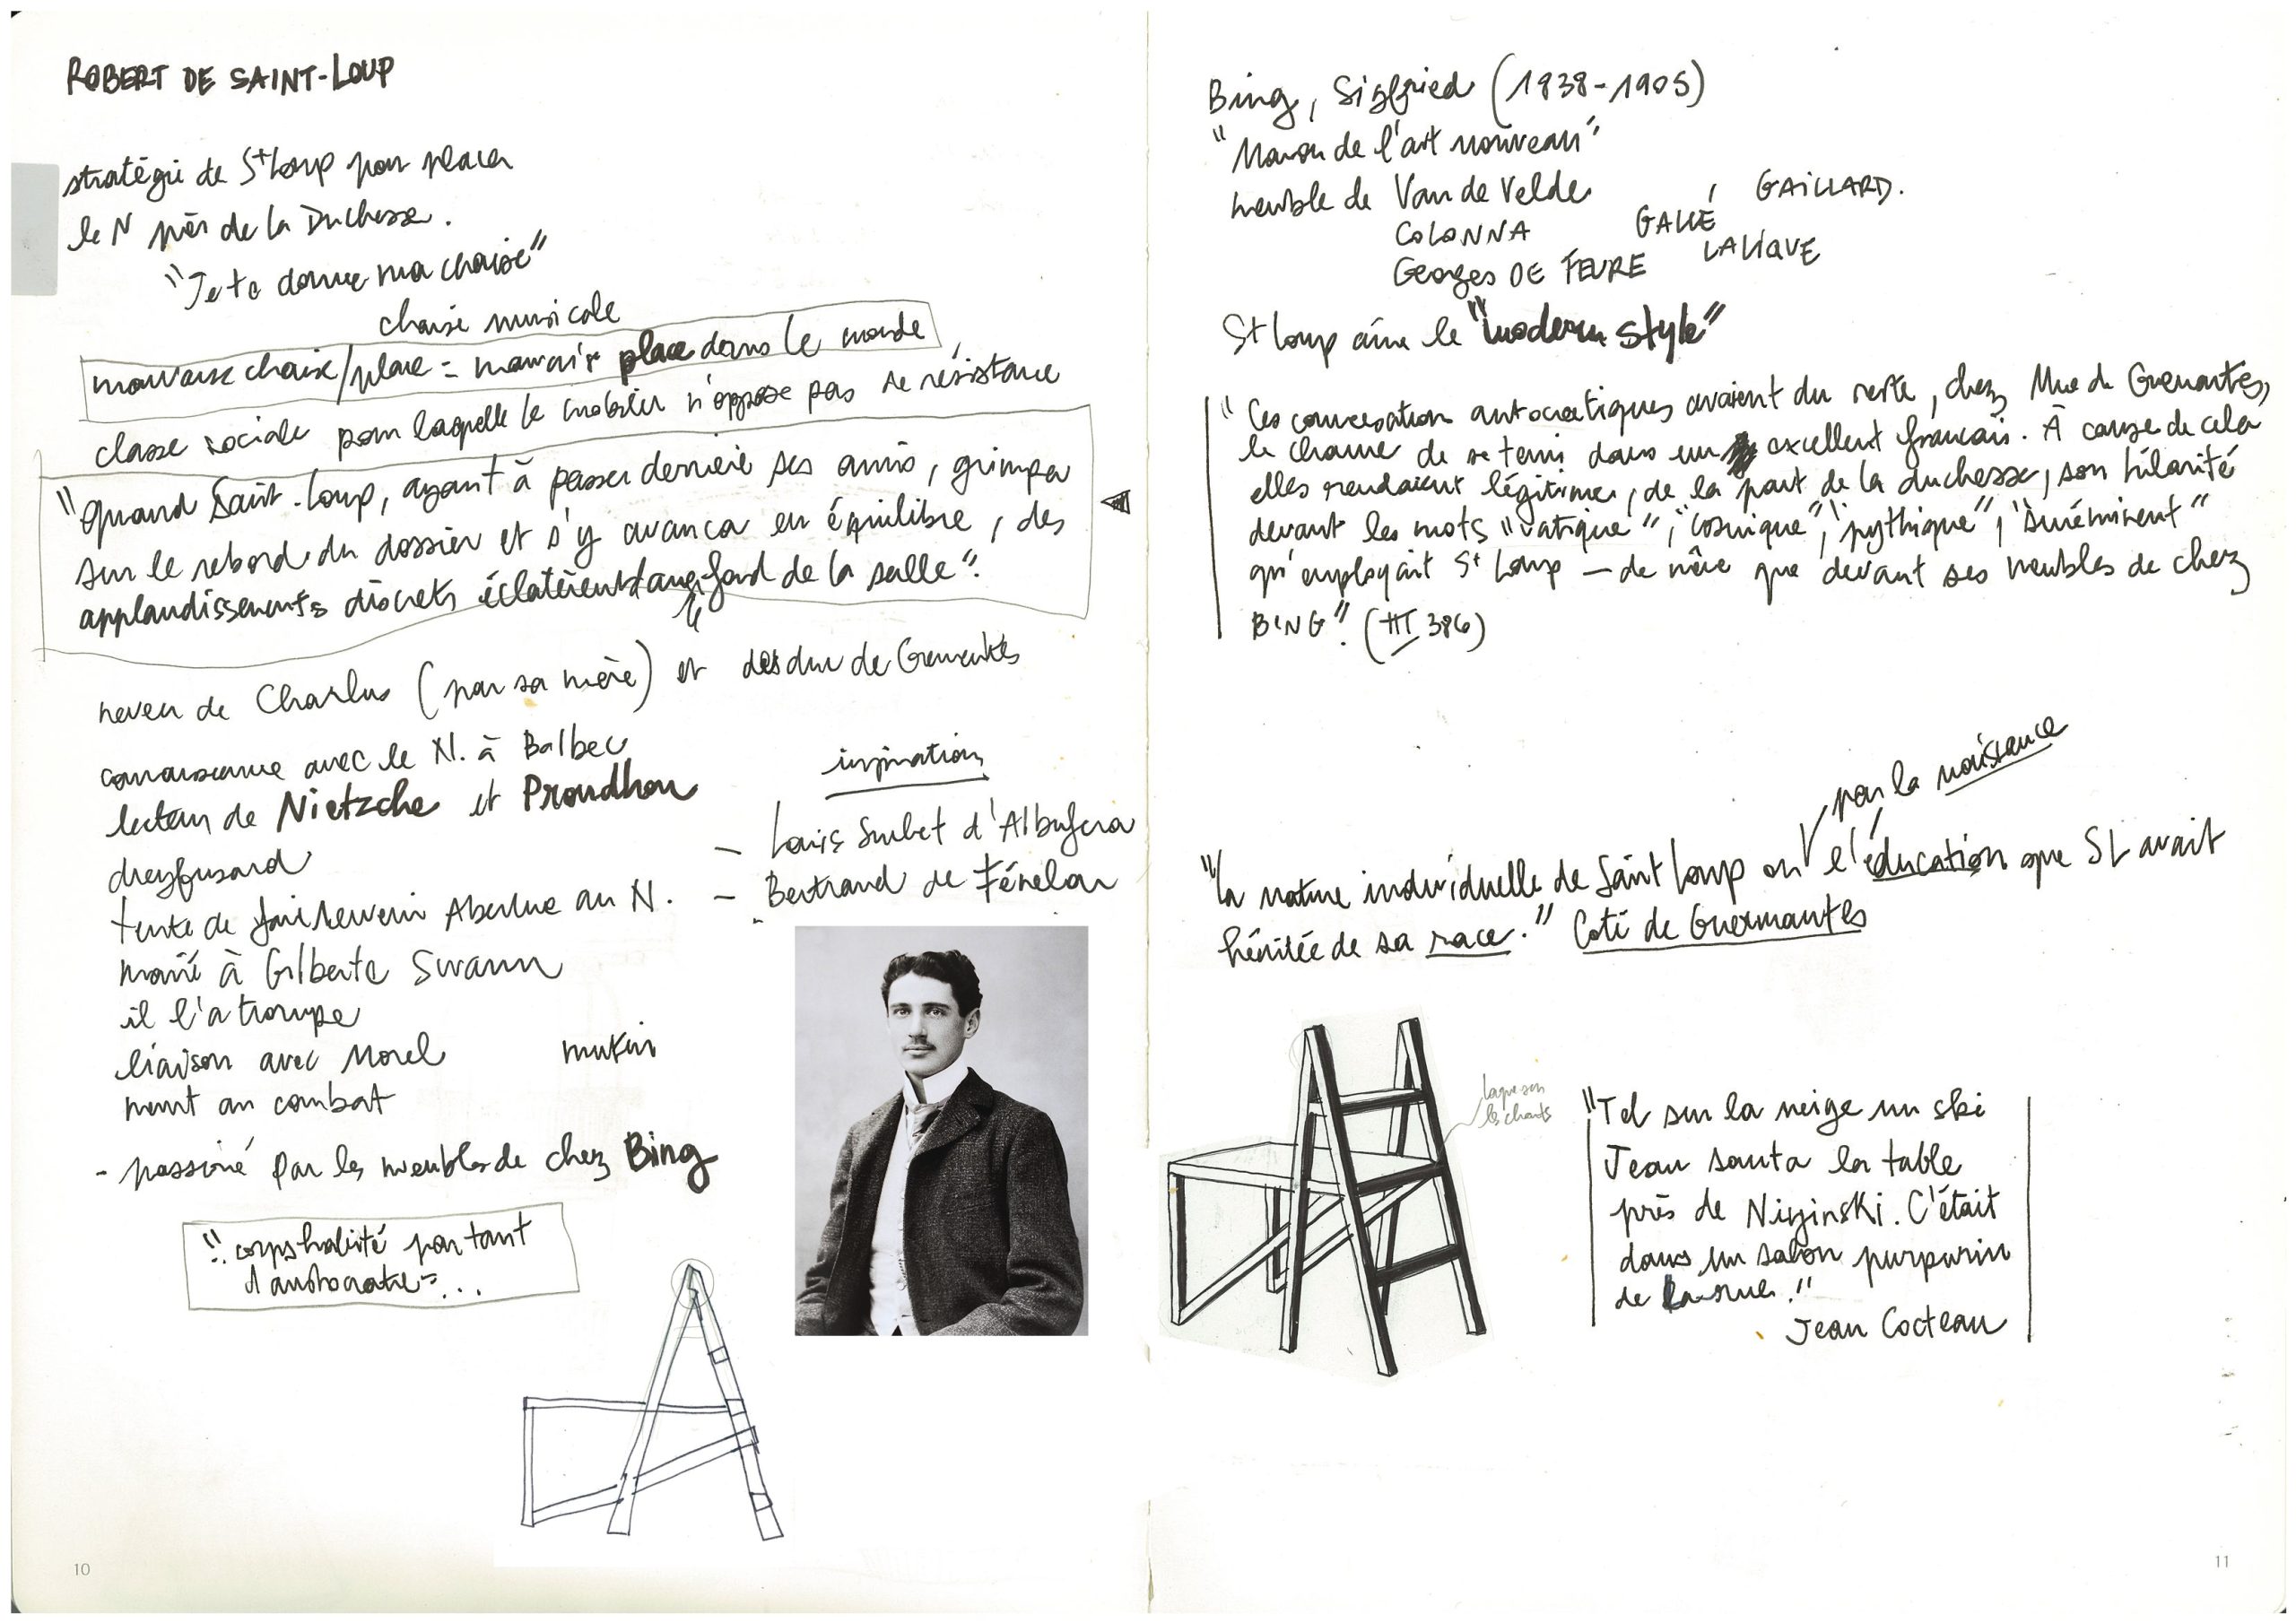 ROBERT DE SAINT-LOUP
stratégie de St Loup pour placer
le N près de la Duchesse.
"Je te donne ma chaise"
chaise musicale
mauvaise chaise/place = mauvaise place dans le monde
classe sociale pour laquelle le mobilier n'oppose pas de résistance
"quand Saint-Loup, ayant à passer derrière ses amis, grimpa
sur le rebord du dossier et s'y avança en équilibre, des
applaudissements discrets éclatèrent dans le fond de la salle".
neveu de Charlus (par sa mère) et des duc de Guermantes
connaissance avec le N. à Balbec
lecteur de Nietzche et Proudhon
dreyfusard
tente de faire revenir Albertine au N.
marié à Gilberte Swann
il l'a trompe
liaison avec Morel
meurt au combat
- passioné par les meubles de chez Bing
inspiration
- Louis Suchet d'Albufera
- Bertrand de Fénelon
10
Bing, Sigfried (1838-1905)
"Maison de l'art nouveau"
meuble de Van de Velde
GAILLARD.
COLONNA GALLÉ
Georges DE FEURE LALIQUE
St Loup aime le "modern style"
"Ces conversation autocratiques avaient du reste, chez Mme de Guermantes,
le charme de se tenir dans un excellent français. À cause de cela
elles rendaient légitime, de la part de la duchesse, son hilarité
devant les mots "vatique", "cosmique", "pythique", "suréminent"
qu'employait St Loup — de même que devant ses meubles de chez
BING". (III 386)
par la naissance
"la nature individuelle de Saint Loup ou l'éducation que SL avait
héritée de sa race." Coté de Guermantes
laque sur
les chants
"Tel sur la neige un ski
Jean sauta la table
près de Nijinski. C'était
dans un salon purpurin
de Larue."
Jean Cocteau
11